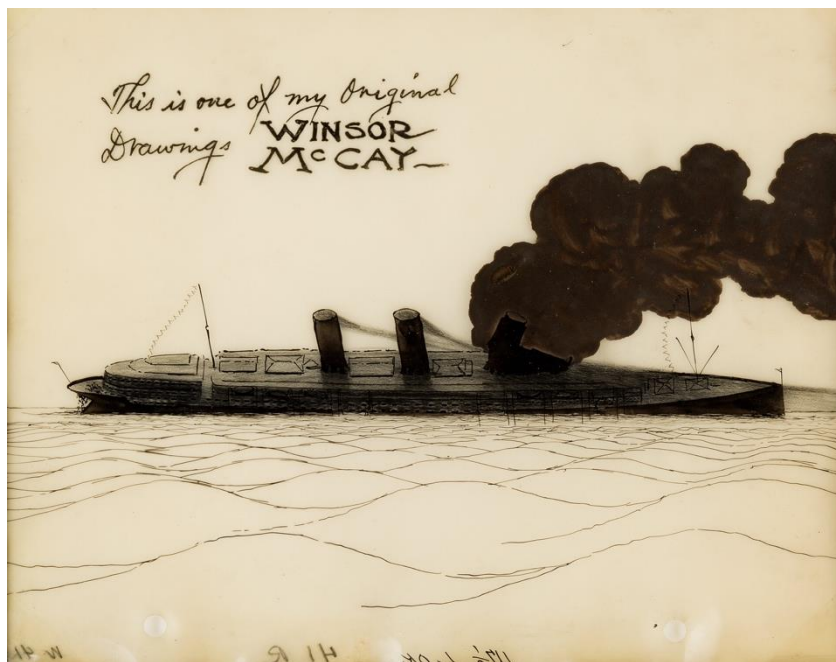 This is one of my Original
Drawings WINSOR
McCAY